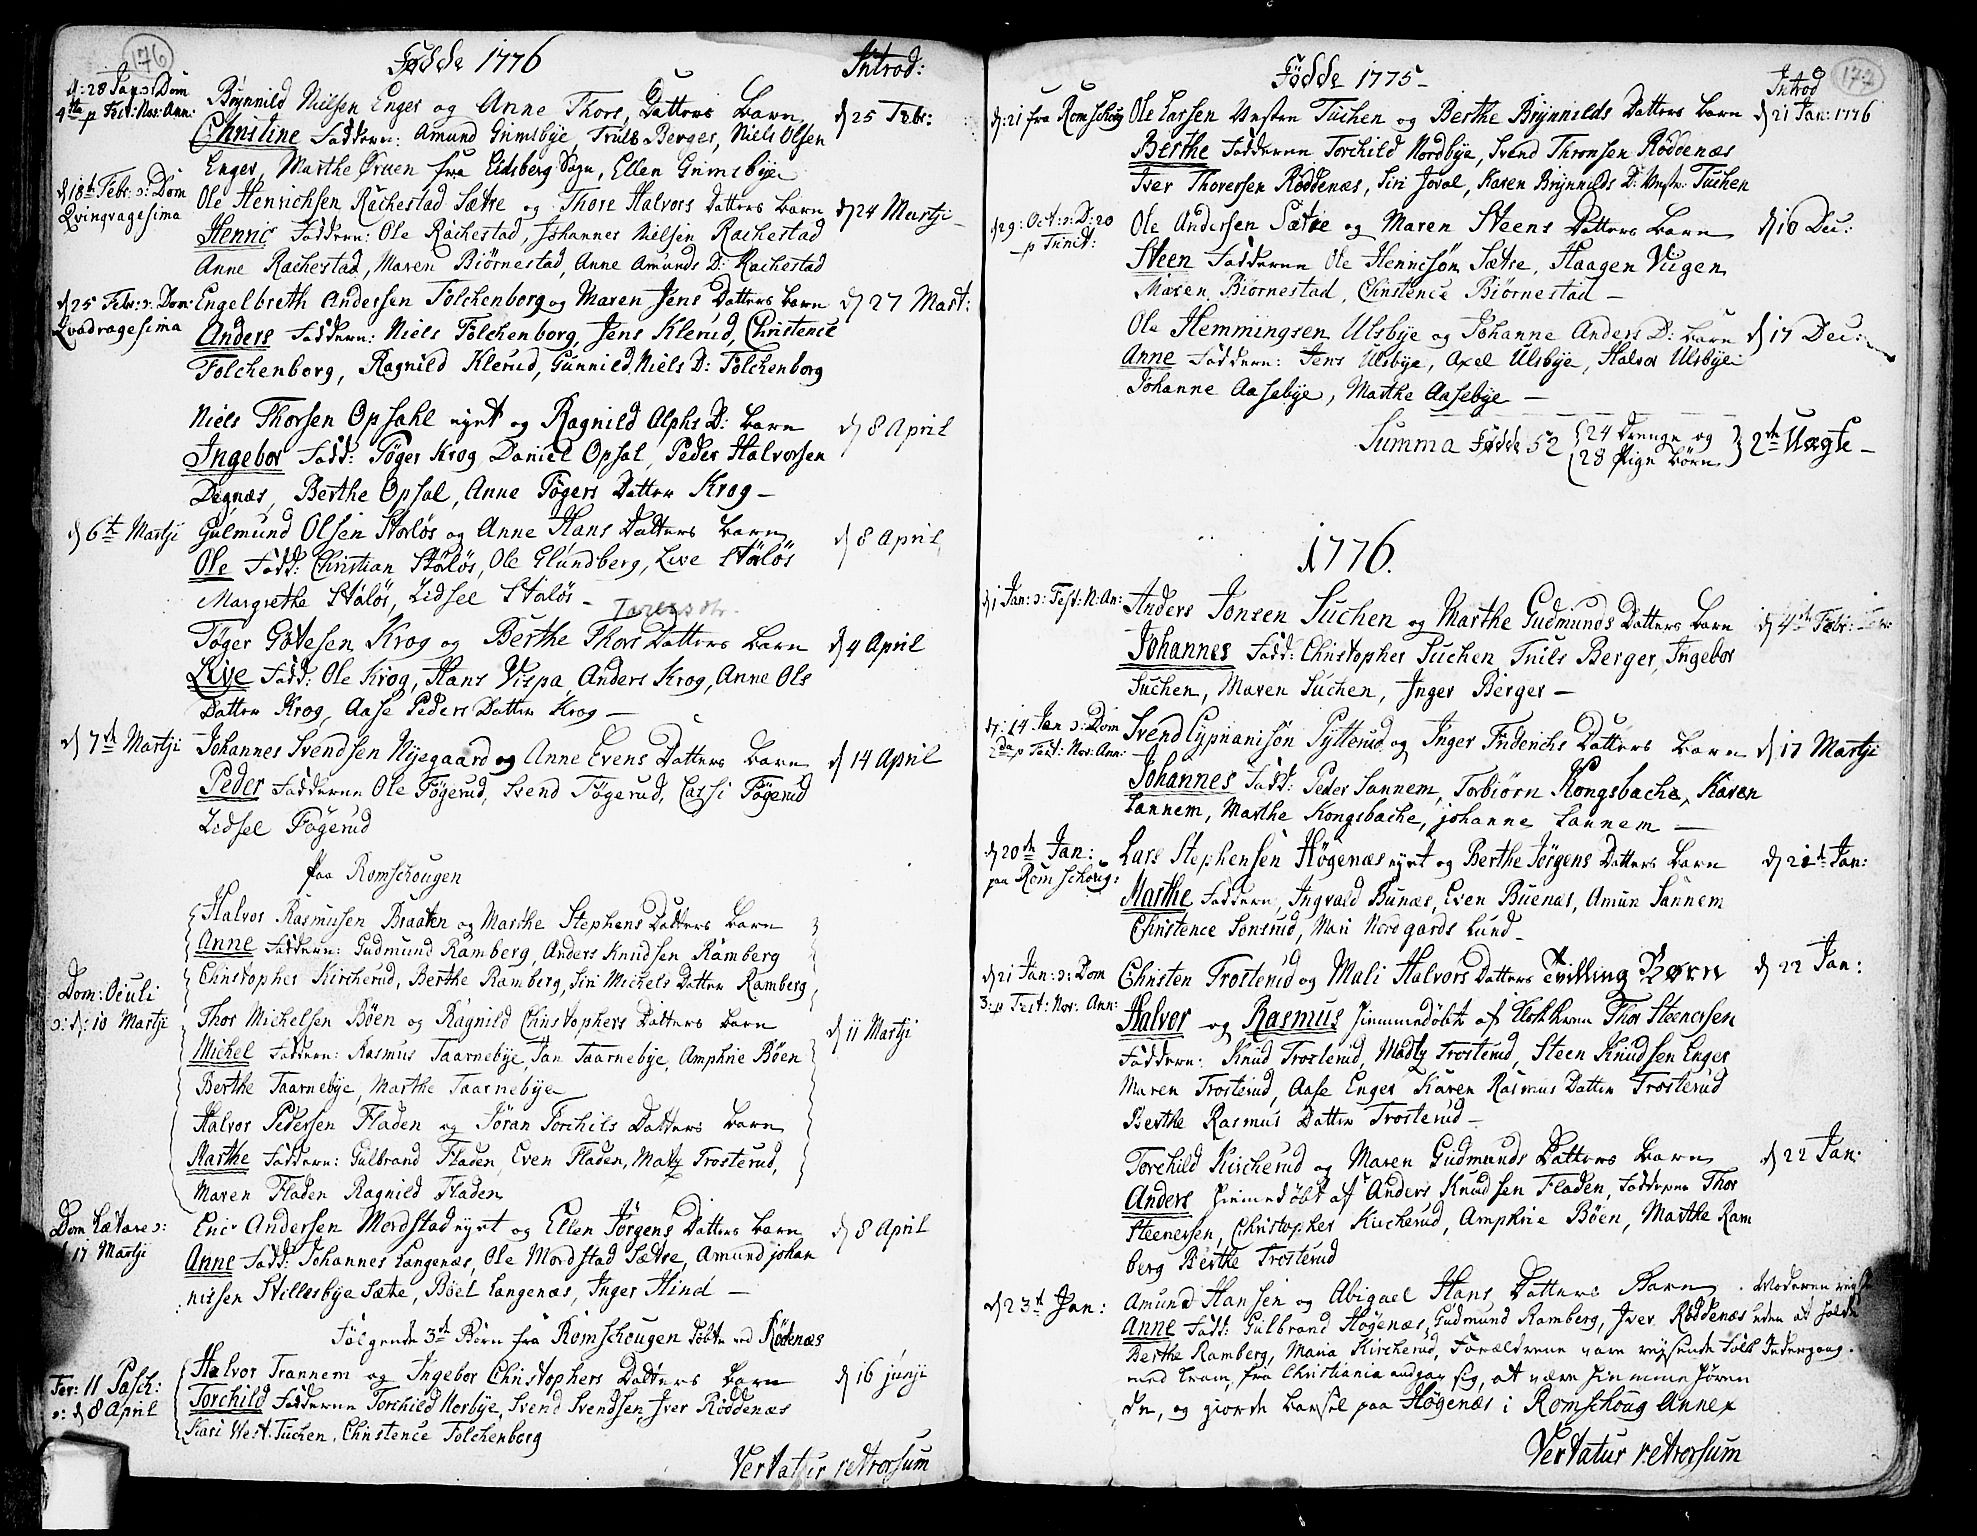 176
Fødde 1776 Introd:
d: 28 Jan: ɔ: Dom
4ta p Fest: Nov: Ann:
Brynnild Nielsen Enger og Anne Thors Datters Barn d 25 Febr:
Christine Fadderne: Amund Grimsbye, Truls Berger, Niels Olsen
Enger, Marthe Øruen fra Eidsberg Sogn, Ellen Grimsbye
d 18t Febr: ɔ: Dom
Qvinqvagesima
Ole Henrichsen Rachestad Sætre og Thore Halvors Datters Barn d 24 Martji
Henric Faddern: Ole Rachestad, Johannes Nielsen Rachestad
Anne Rachestad, Maren Biørnestad, Anne Amunds D: Rachestad
d 25 Febr: ɔ: Dom:
Qvadragesima
Engelbreth Andersen Folchenborg og Maren Jens Datters Barn d 27 Mart:
Anders Faddern: Niels Folchenborg, Jens Klerud, Christence
Folchenborg, Ragnild Klerud, Gunnild Niels D: Folchenborg
Niels Thorsen Opsahl eyet og Ragnild Alphs D: Barn d 8 April
Ingebor Fadd: Tøger Krog, Daniel Opsal, Peder Halvorsen
Degnæs, Berthe Opsal, Anne Tøgers Datter Krog –
d 6te Martji
Gulmund Olsen Storløs og Anne Hans Datters Barn d 8 April
Ole Fadd: Christian Støløs, Ole Glundberg, Live Størløs
Margrethe Støløs, Zidsel Støløs –
Tøger Gotesen Krog og Berthe Thors Datters Barn d 4 April
Live Fadd: Ole Krog, Hans Vispa, Anders Krog, Anne Ols
Datter Krog, Aase Peders Datter Krog –
d 7de Martji
Johannes Svendsen Nyegaard og Anne Evens Datters Barn d 14 April
Peder Fadderne Ole Føgerud, Svend Føgerud, Cassi Føgerud
Zidsel Føgerud
paa Romschougen
Halvor Rasmusen Braaten og Marthe Stephens Datters Barn
Anne Faddern: Gudmund Ramberg, Anders Knudsen Ramberg
Christopher Kircherud, Berthe Ramberg, Siri Michels Datter Ramberg
Dom: Oculi
ɔ: d: 10 Martji
Thor Michelsen Böen og Ragnild Christophers Datters Barn d 11 Martji
Michel Faddern: Rasmus Taarnebye, Jan Taarnebye, Amphrie Böen
Berthe Taarnebye, Marthe Taarnebye
Halvor Pedersen Fladen og Jöran Torchils Datters Barn
Marthe Faddern: Gulbrand Fladen, Even Fladen, Matz Trosterud,
Maren Fladen Ragnild Fladen
Dom Lætare ɔ:
d 17 Martji
Eric Andersen Mordstad eyet og Ellen Jørgens Datters Barn d 8 April
Anne Fadd: Johannes Langenæs, Ole Mordstad Sætre, Amund johan
nissen Stillesbye Sætre, Böel Langenæs, Inger Hind –
Følgende 3de Børn fra Romschougen døbte ved Rödenæs
Fer: 11 Pasch:
ɔ: d 8 April
Halvor Trannem og Ingebor Christophers Datters Barn d 16 junji
Torchild Fadderne Torchild Norbye, Svend Svendsen, Iver Röddenæs
Kari West: Tuchen, Christence Folchenborg
Vertatur retrorsum
177
Födde 1775 – Introd
d: 21 fra Romschoug Ole Larsen Vestre Tuchen og Berthe Brynnilds Datters Barn d 21 Jan: 1776
Berthe Fadderne Torchild Nordbye, Svend Thronsen Röddenæs
Iver Thoversen Röddenæs, Siri Joval, Karen Brynnilds D: Vestr: Tuchen
d 29: Oct: ɔ: D: 20
p Trinit:
Ole Andersen Sætre og Maren Steens Datters Barn d 10 Dec:
Steen Fadderne Ole Henricsön Sætre, Haagen Vugen
Maren Biörnestad, Christence Biørnestad –
Ole Hemmingsen Ulsbye og Johanne Anders D: Barn d 17 Dec:
Anne Faddern: Jens Ulsbye, Axel Ulsbye, Halvor Ulsbye
Johanne Aasebye, Marthe Aasebye –
Summa Fødde 52 {24 Drenge og
{28 Pige Børn} 2de Uægte –
1776.
d 1 Jan: ɔ: Fest: N: An:
Anders Jonsen Tuchen og Marthe Gudmunds Datters Barn d 4de Febr:
Johannes Fadd: Christopher Tuchen, Truls Berger, Ingebor
Tuchen, Maren Tuchen, Inger Berger –
d: 14 Jan ɔ: Dom
2da p Fest: Nov: Ann:
Svend Cyprianisön Pytterud og Inger Friderichs Datters Barn d 17 Martji
Johannes Fadd: Peder Sannem, Torbiörn Kongsbache, Karen
Sannem, Marthe Kongsbache, johanne Sannem –
d 20de Jan:
paa Romschoug:
Lars Stephensen Høgenæs eyet og Berthe Jörgens Datters Barn d 21de Jan:
Marthe Fadderne, Ingvald Bunæs, Even Buenæs, Amun Sannem
Christence Sonsrud, Mari Nordgards Lund –
d 21 Jan: ɔ: Dom
3: p Fest: Nov: Ann:
Christen Trosterud og Mali Halvors Datters Tvilling Børn d 22 Jan:
Halvor og Rasmus hiemmedöbte af Klokkeren Thor Steenersen
Faddern: Knud Trosterud, Madtz Trosterud, Steen Knudsen Enger
Maren Trosterud, Aase Enger Karen Rasmus Datter Trosterud
Berthe Rasmus Datter Trosterud –
Torchild Kircherud og Maren Gudmunds Datters Barn d 22 Jan:
Anders hiemedöbt af Anders Knudsen Fladen, Fadderne Thor
Steenersen, Christopher Kircherud, Amphrie Böen, Marthe Ram
berg Berthe Trosterud
d 23de Jan:
Amund Hansen og Abigael Hans Datters Barn. Moderen reyste
Anne Fadd: Gulbrand Høgenæs, Gudmund Ramberg, Iver Röddenæs uden at holde
Berthe Ramberg, Maria Kircherud, Forældrene vare reysende Folk Indgang.
med Kram, fra Christiania angav sig, at være hiemmehören
de, og giorde Barsel paa Høgenæs i Romschoug Annex
Vertatur retrorsum